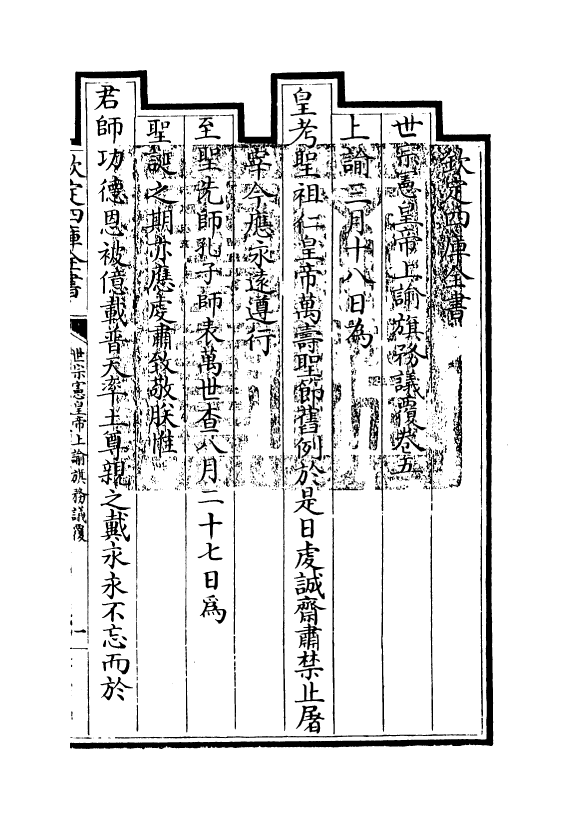 欽定四庫全書
世宗憲皇帝上諭旗務議覆卷五
上諭三月十八日為
皇考聖祖仁皇帝萬壽聖節舊例於是日虔誠齋肅禁止屠
宰今應永遠遵行
至聖先師孔子師表萬世查八月二十七日為
聖誕之期亦應虔肅致敬朕惟
君師功德恩被億載普天率土尊親之戴永永不忘而於
欽定四庫全書
世宗憲皇帝上諭旗務議覆
一